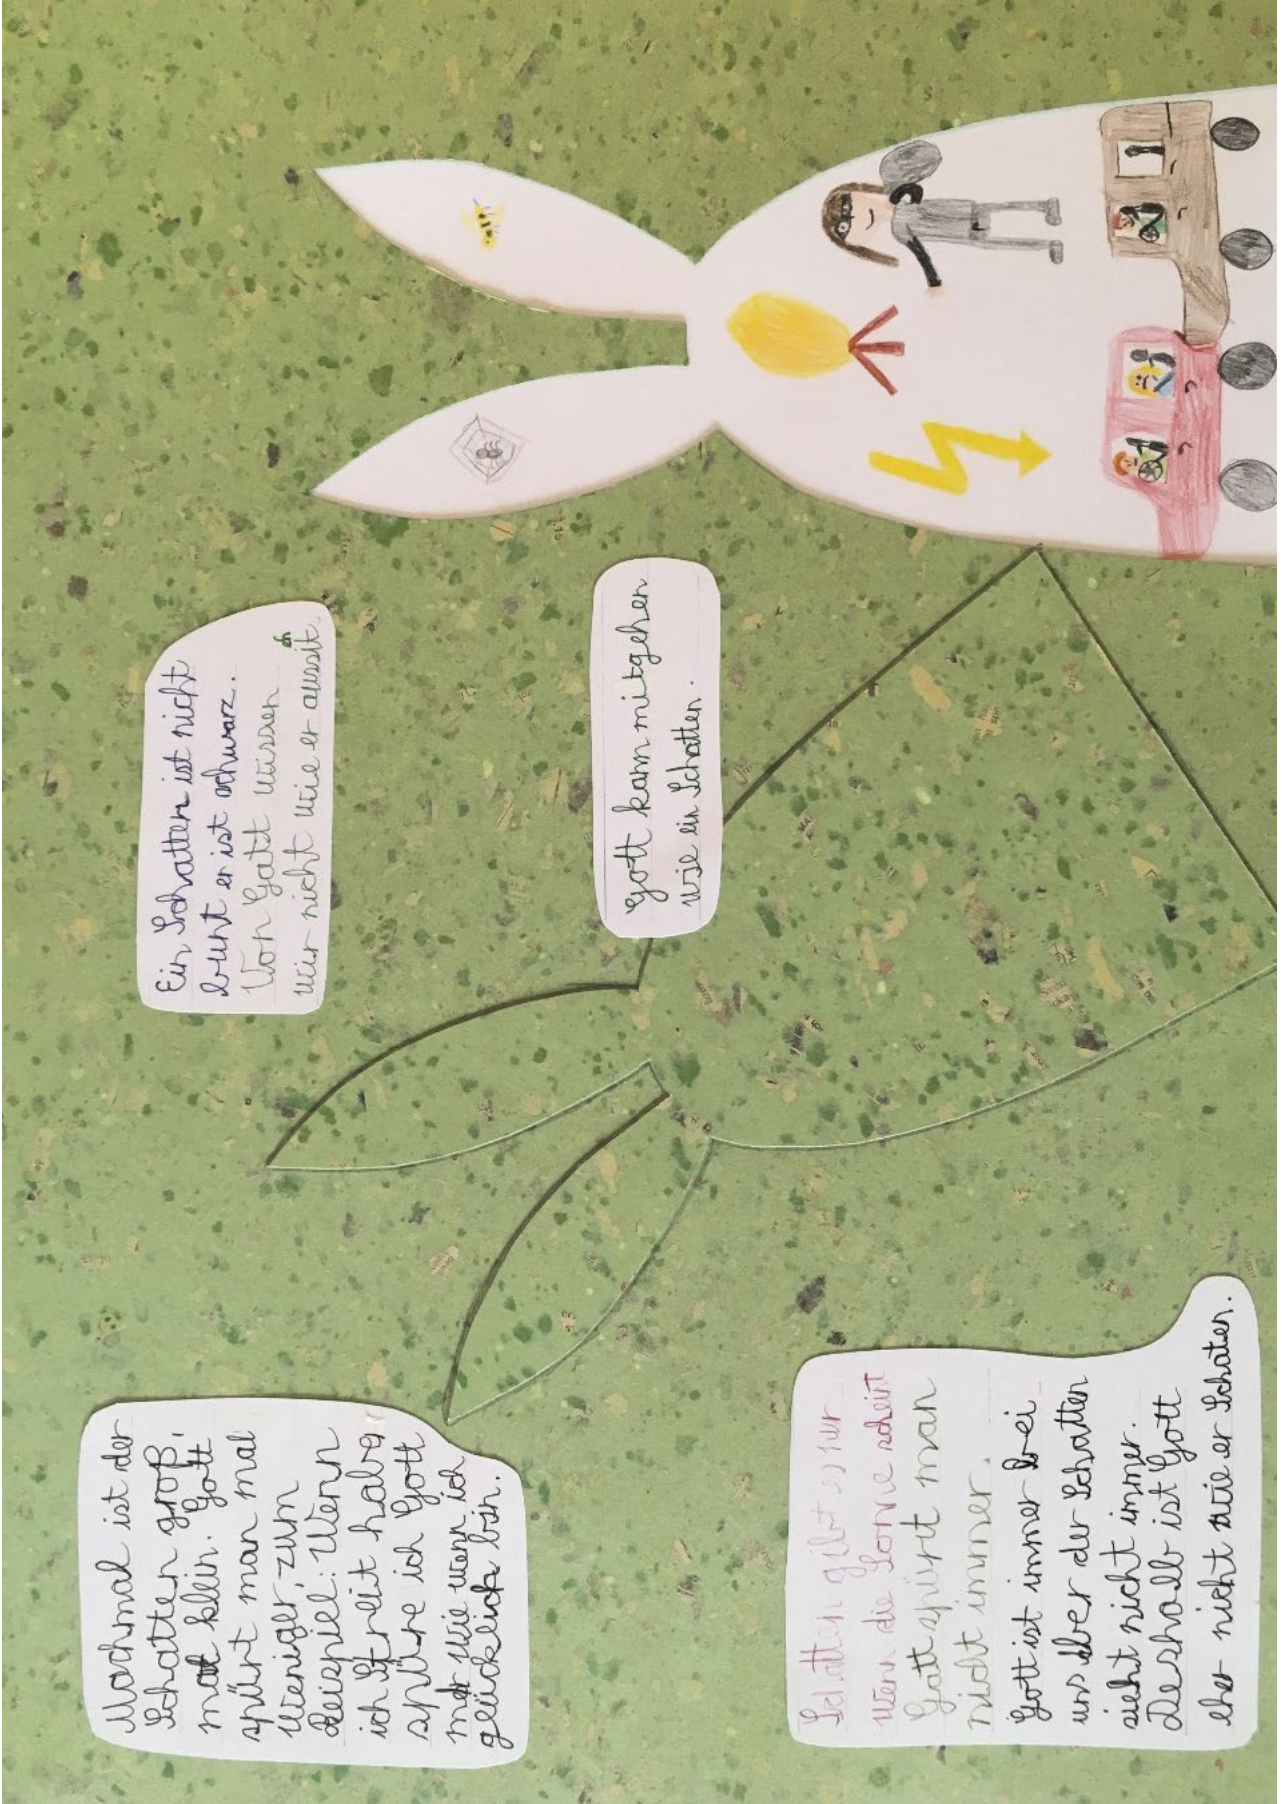 Machmal ist der
Schatten groß,
mal klein. Gott
spürt man mal
weniger, zum
Beispiel: Wenn
ich Streit habe
spüre ich Gott
mer wie wenn ich
glücklich bin.
Ein Schatten ist nicht
bunt er ist schwarz.
Von Gott wissen
wir nicht wie er aussit.
eh
Gott kann mitgehen
wie ein Schatten.
Schatten gibt es nur
wenn die Sonne scheint
Gott spürt man
nicht immer.
Gott ist immer bei
uns aber der Schatten
sieht nicht immer.
Deshalb ist Gott
eher nicht wie er Schaten.